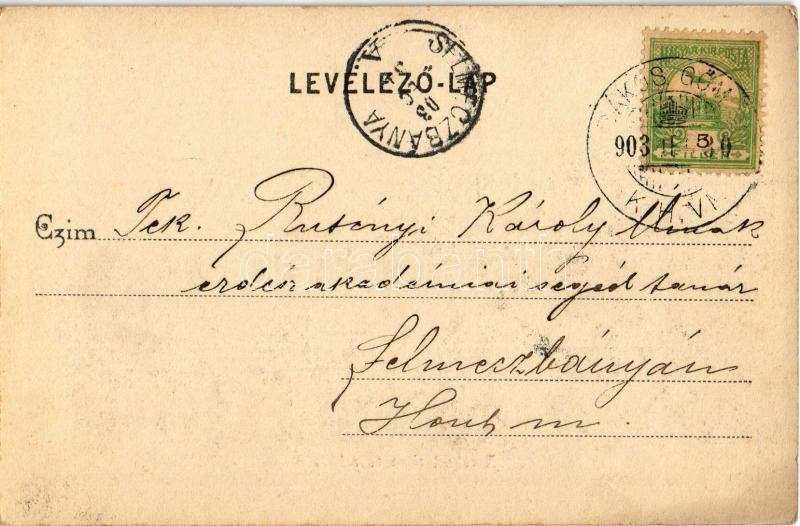 LEVELEZŐ-LAP
SELMECZBÁNYA
A
03
MAGYAR KIR. POSTA
5
RÁKOS GÖM
903
K. H. VM
Czim Tek. Rutényi Károly Úrnak
erdész akadémiai segéd tanár
Selmeczbányán
Hont m.
darabanth